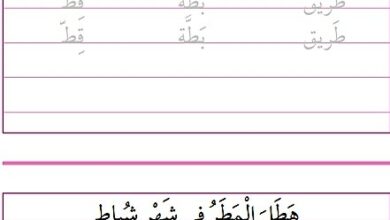 طريق بطة قط
طَريق بَطَّة قِطّ
هَطَلَ الْمَطَرُ في شَهْرِ شُباط